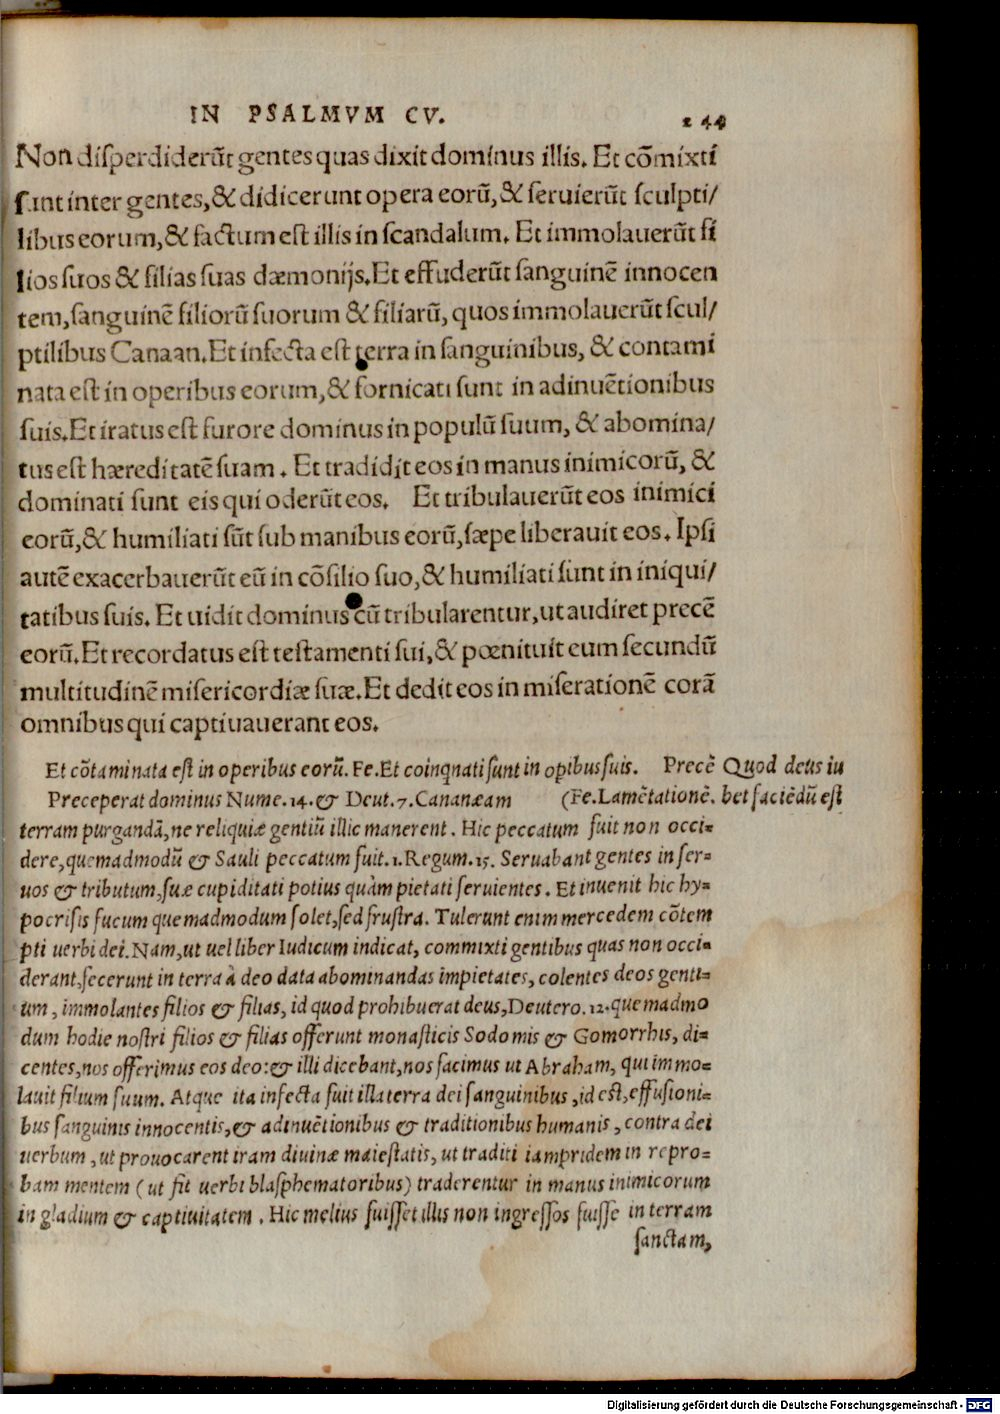 IN PSALMVM CV. 244
Non disperdiderūt gentes quas dixit dominus illis. Et cōmixti
sunt inter gentes, & didicerunt opera eorū, & seruierūt sculpti/
libus eorum, & factum est illis in scandalum. Et immolauerūt fi
lios suos & filias suas dæmonijs. Et effuderūt sanguinē innocen
tem, sanguinē filiorū suorum & filiarū, quos immolauerūt scul/
ptilibus Canaan. Et infecta est terra in sanguinibus, & contami
nata est in operibus eorum, & fornicati sunt in adinuētionibus
suis. Et iratus est furore dominus in populū suum, & abomina/
tus est hæreditatē suam. Et tradidit eos in manus inimicorū, &
dominati sunt eis qui oderūt eos. Et tribulauerūt eos inimici
eorū, & humiliati sūt sub manibus eorū, sæpe liberauit eos. Ipsi
autē exacerbauerūt eū in cōsilio suo, & humiliati sunt in iniqui/
tatibus suis. Et uidit dominus cū tribularentur, ut audiret precē
eorū. Et recordatus est testamenti sui, & pœnituit eum secundū
multitudinē misericordiæ suæ. Et dedit eos in miserationē corā
omnibus qui captiuauerant eos.
Et cōtaminata est in operibus eorū. Fe. Et coinqnati sunt in opibus suis. Precē
Preceperat dominus Nume. 14. & Deut. 7. Cananæam (Fe. Lamētationē.
Quod deus iu
bet faciēdū est
terram purgandā, ne reliquiæ gentiū illic manerent. Hic peccatum fuit non occi=
dere, quemadmodū & Sauli peccatum fuit. 1. Regum. 15. Seruabant gentes in ser=
uos & tributum, suæ cupiditati potius quàm pietati seruientes. Et inuenit hic hy=
pocrisis fucum quemadmodum solet, sed frustra. Tulerunt enim mercedem cōtem
pti uerbi dei. Nam, ut uel liber Iudicum indicat, commixti gentibus quas non occi=
derant, fecerunt in terra à deo data abominandas impietates, colentes deos genti=
um, immolantes filios & filias, id quod prohibuerat deus, Deutero. 12. quemadmo
dum hodie nostri filios & filias offerunt monasticis Sodomis & Gomorrhis, di=
centes, nos offerimus eos deo: & illi dicebant, nos facimus ut Abraham, qui immo=
lauit filium suum. Atque ita infecta fuit illa terra dei sanguinibus, id est, effusioni=
bus sanguinis innocentis, & adinuētionibus & traditionibus humanis, contra dei
uerbum, ut prouocarent iram diuinæ maiestatis, ut traditi iampridem in repro=
bam mentem (ut fit uerbi blasphematoribus) traderentur in manus inimicorum
in gladium & captiuitatem. Hic melius fuisset illis non ingressos fuisse in terram
sanctam,
Digitalisierung gefördert durch die Deutsche Forschungsgemeinschaft - DFG